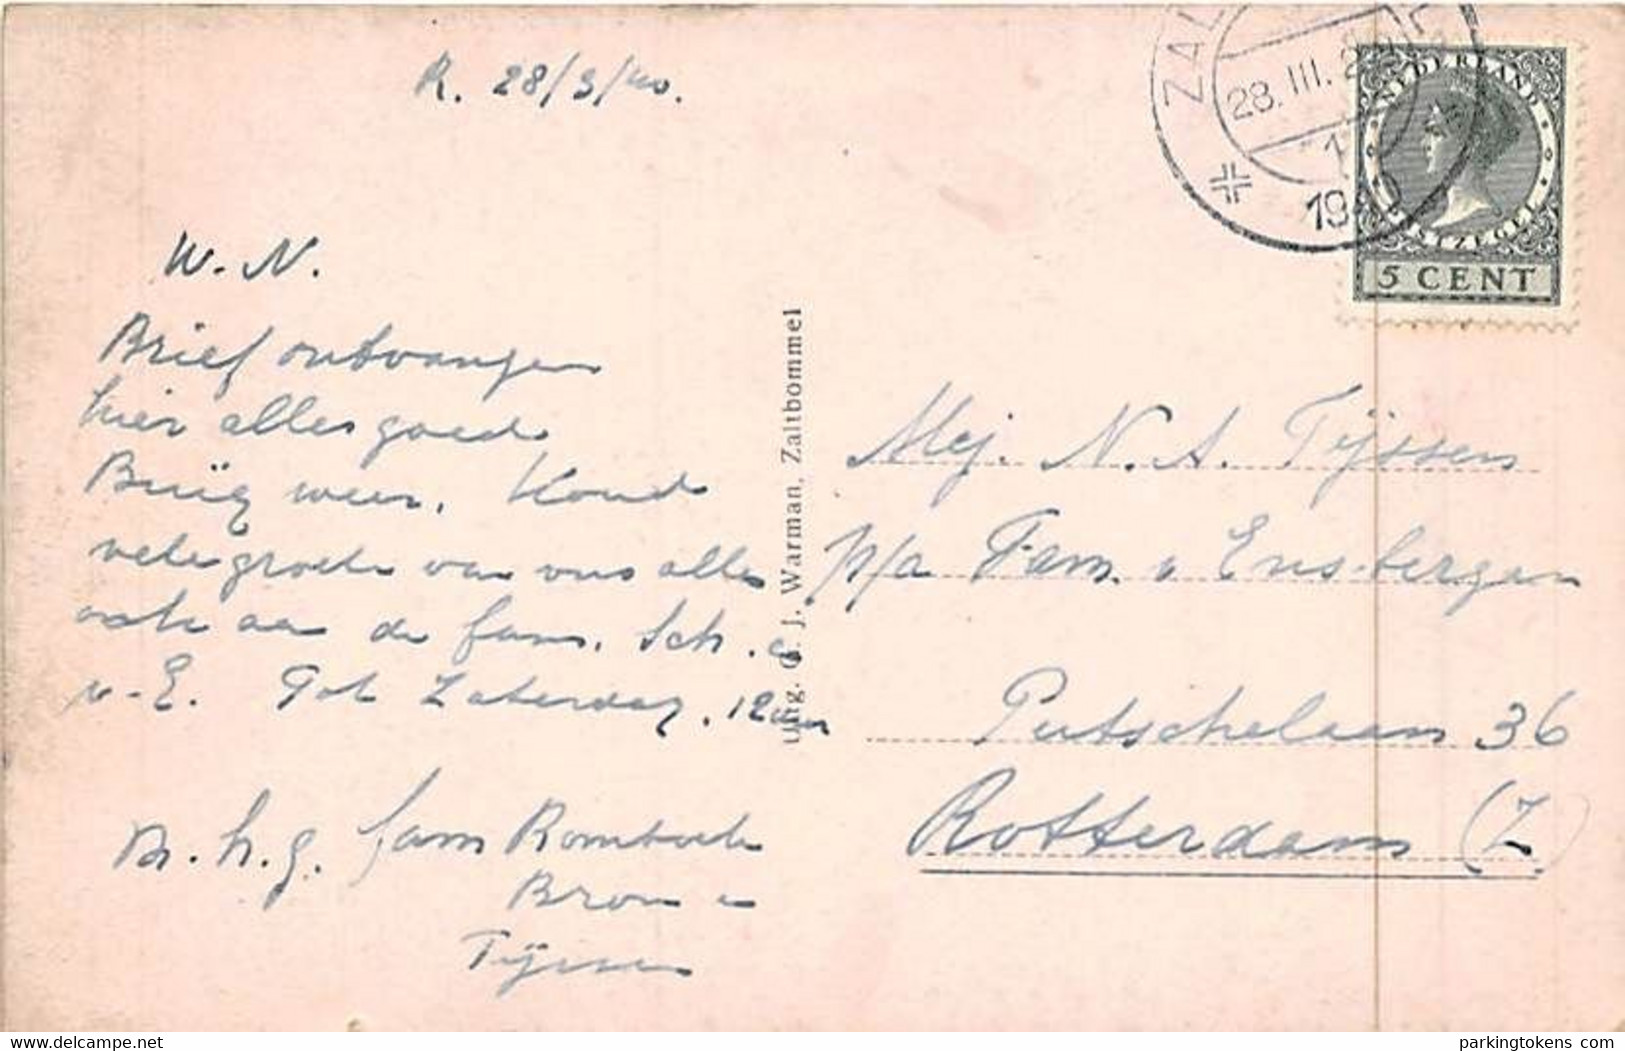 R. 28/3/40.
W. N.
Brief ontvangen
hier alles goed
weer. Koud
vele groete van ons alle
ook aa de fam. Sch.
v. E. Tot Zaterdag. 12 uur
M. h. g. fam
Bron en
Tijssen
Uitg. C. J. Warman, Zaltbommel
ZAL
28. III. 2
1940
NEDERLAND
POSTZEGEL
5 CENT
Mej. N. A. Tijssen
p/a Fam. v Ensbergen
Putschelaan 36
Rotterdam (Z.)
delcampe.net
parkingtokens.com